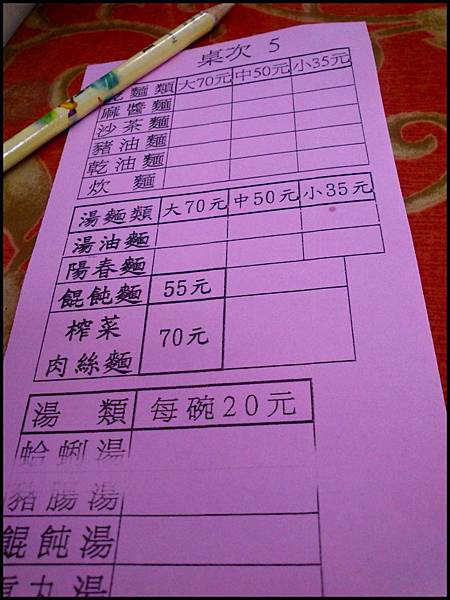 桌次 5
麵類 大70元 中50元 小35元
麻醬麵
沙茶麵
豬油麵
乾油麵
炊麵
湯麵類 大70元 中50元 小35元
湯油麵
陽春麵
餛飩麵 55元
榨菜
肉絲麵 70元
湯類 每碗20元
蛤蜊湯
豬腸湯
餛飩湯
丸湯